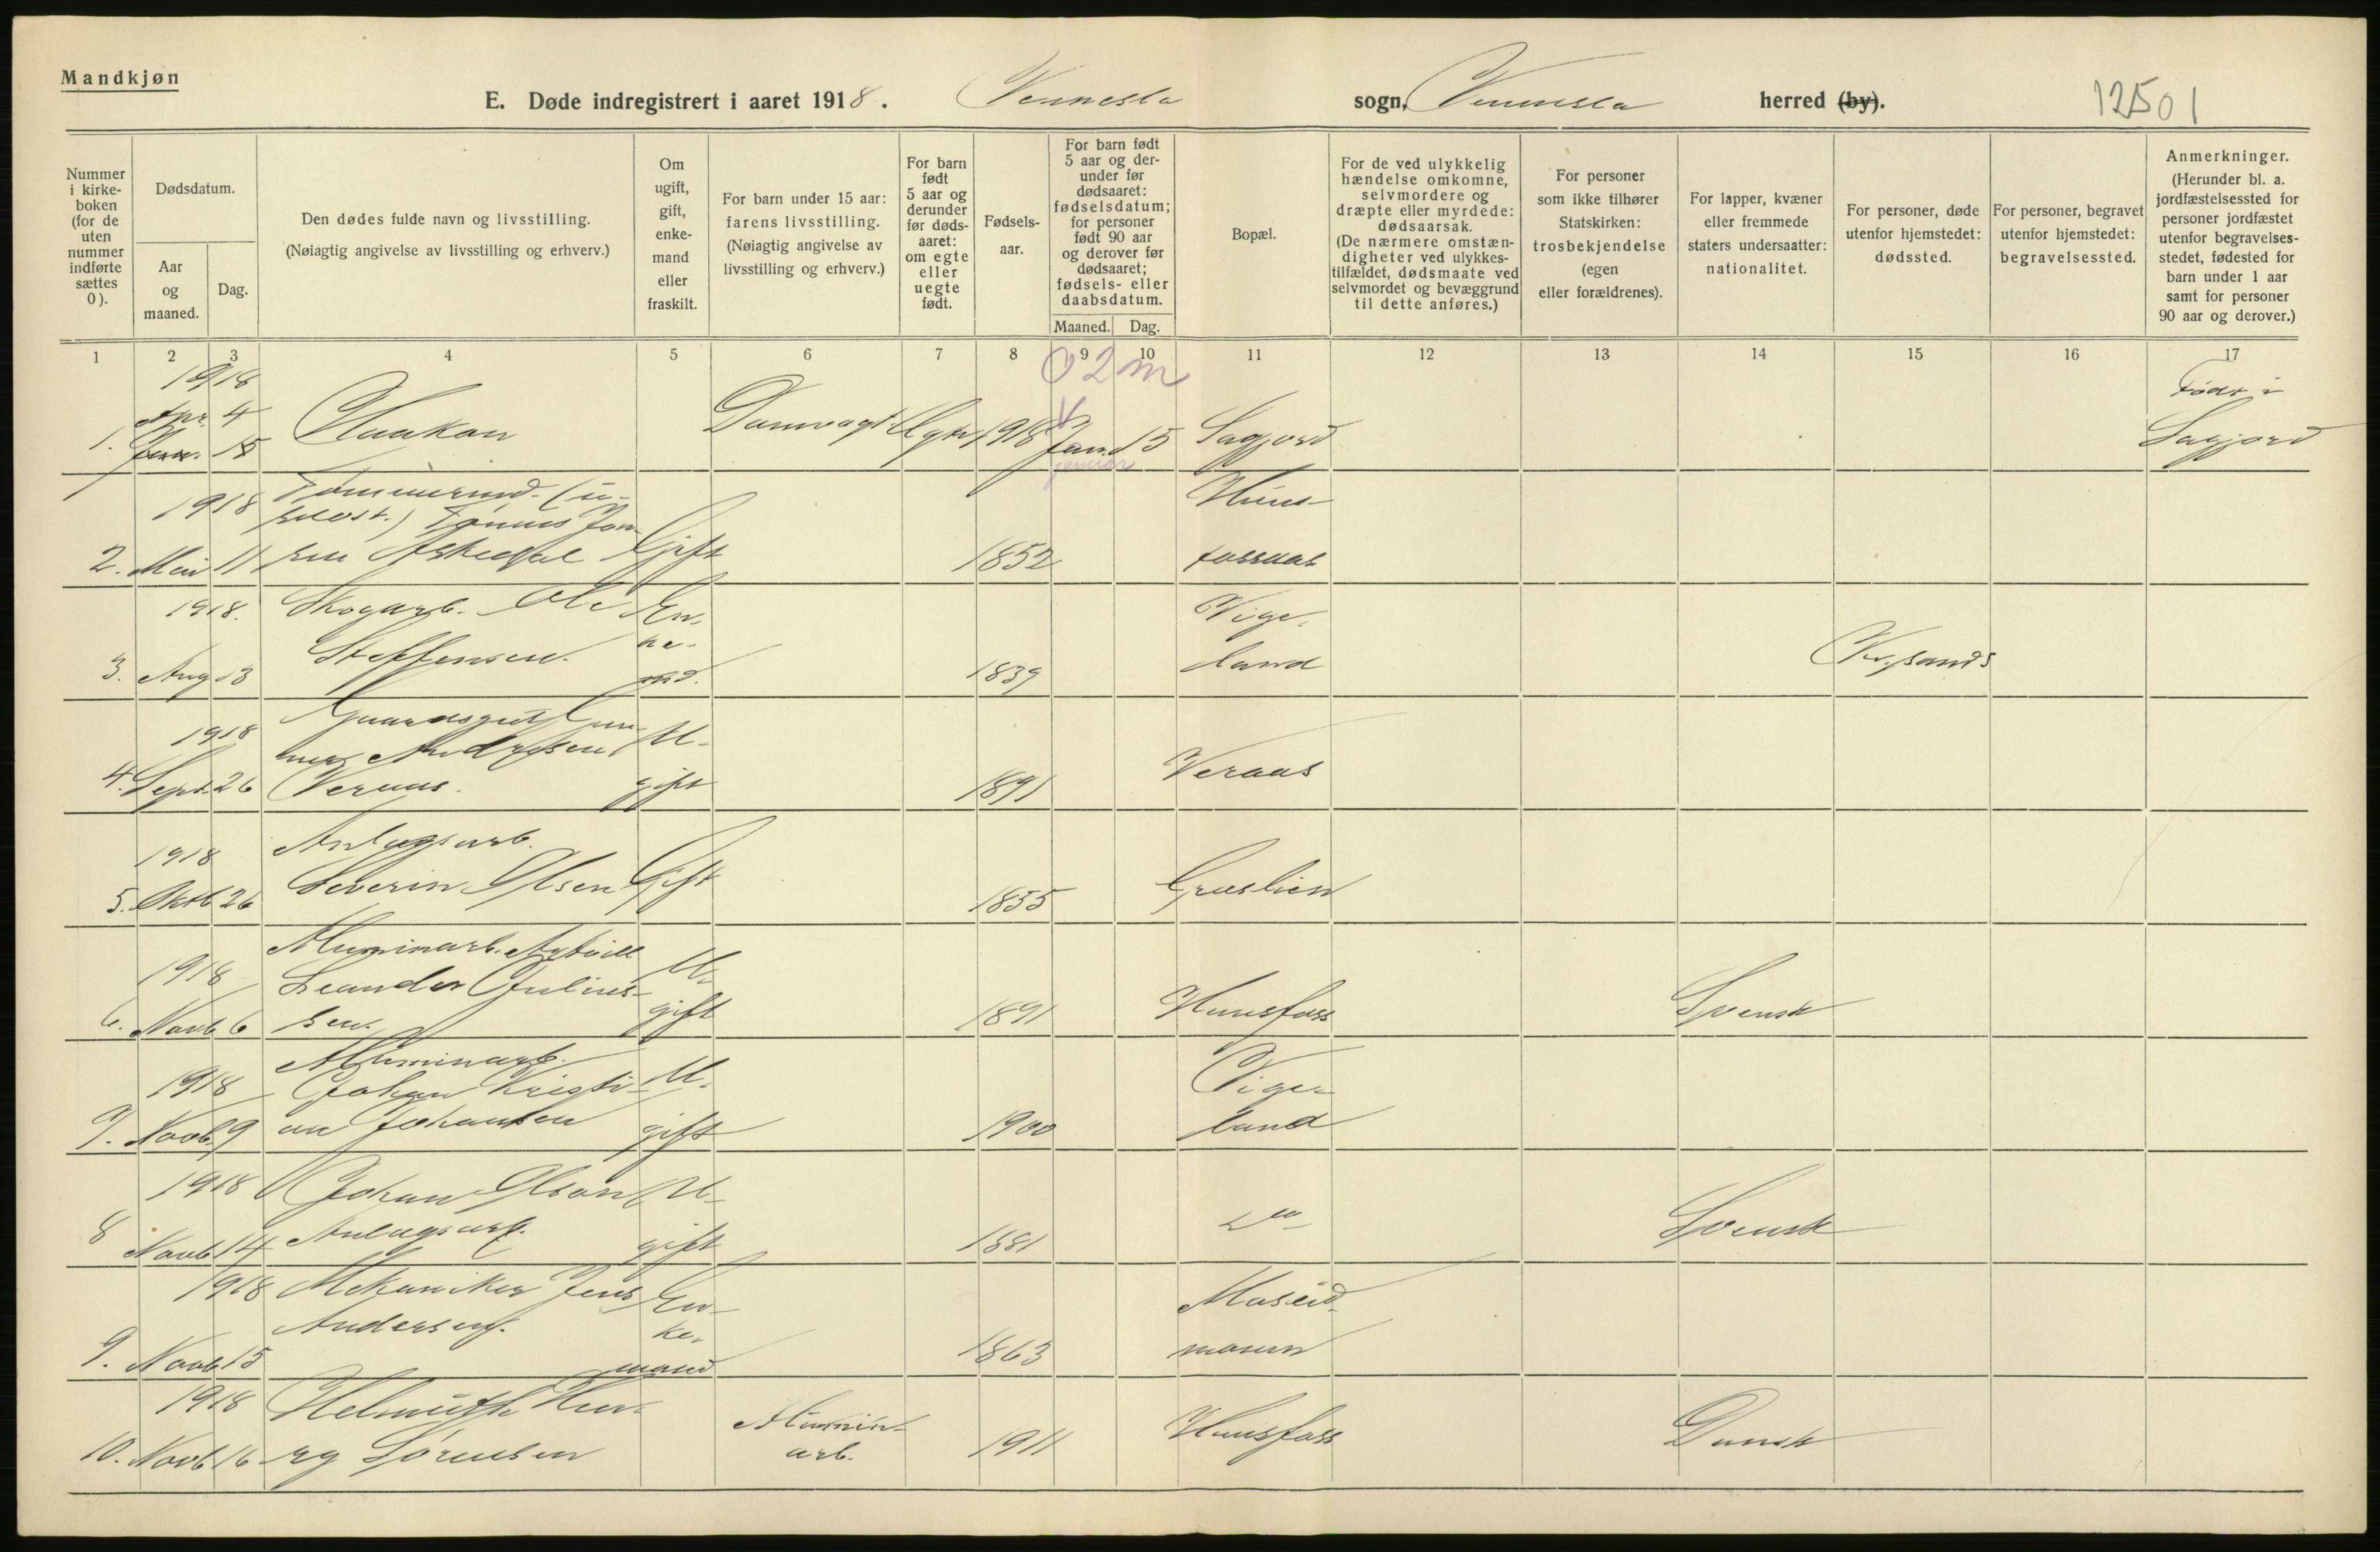 Mandkjøn
E. Døde indregistrert i aaret 1918. Vennesla sogn, Vennesla herred (by). 12501
Nummer i kirke-boken (for de uten nummer indførte sættes 0).
Dødsdatum.
Aar og maaned.
Dag.
Den dødes fulde navn og livsstilling.
(Nøiagtig angivelse av livsstilling og erhverv.)
Om ugift, gift, enke-mand eller fraskilt.
For barn under 15 aar: farens livsstilling.
(Nøiagtig angivelse av livsstilling og erhverv.)
For barn født 5 aar og derunder før døds-aaret: om egte eller uegte født.
Fødsels-aar.
For barn født 5 aar og der-under før dødsaaret: fødselsdatum; for personer født 90 aar og derover før dødsaaret; fødsels- eller daabsdatum.
Maaned. Dag.
Bopæl.
For de ved ulykkelig hændelse omkomne, selvmordere og dræpte eller myrdede: dødsaarsak.
(De nærmere omstæn-digheter ved ulykkes-tilfældet, dødsmaate ved selvmordet og bevæggrund til dette anføres.)
For personer som ikke tilhører Statskirken: trosbekjendelse (egen eller forældrenes).
For lapper, kvæner eller fremmede staters undersaatter: nationalitet.
For personer, døde utenfor hjemstedet: dødssted.
For personer, begravet utenfor hjemstedet: begravelsessted.
Anmerkninger.
(Herunder bl. a. jordfæstelsessted for personer jordfæstet utenfor begravelses-stedet, fødested for barn under 1 aar samt for personer 90 aar og derover.)
1 2 3 4 5 6 7 8 9 10 11 12 13 14 15 16 17
1918 0 2 m Født i
Apr. 4
1. Jan. 15 Haakon Damvagt Egte 1918 Jan. 15 Sagjord Sagjord
januar
1918 Tømmermd. Huns-
Tønnes Jon-
2. Mai 11 sen Askedal Gift 1852 fossaas
1918. Skogarb. Ole En- Vige-
Steffensen. ke-
3. Aug. 3 md. 1839 land Kr.sands
1918 Gaardsgut Gun-
nar Andresen U-
4. Sept. 26 Veraas. gift 1891 Veraas
1918 Anlægsarb.
5. Oktb 26 Severin Olsen Gift 1855 Graslien
Aluminarb.
1918 Leander Julius- U-
6. Novb 6 sen. gift 1891 Hunsfoss Svensk
Aluminarb.
1918 Johan Kristi- U- Vige-
7. Novb. 9 an Johansen gift 1900 land
1918 Johan Olson U-
8 Novb 14 Anlægsarb. gift 1881 Svensk
1918 Mekaniker Jens En- Moseid-
Andersen. ke-
9. Novb 15 mand 1863 moen
1918 Helmuth Hen- Alumin-
10. Novb 16 ry Sørensen arb. 1911 Hunsfoss Dansk